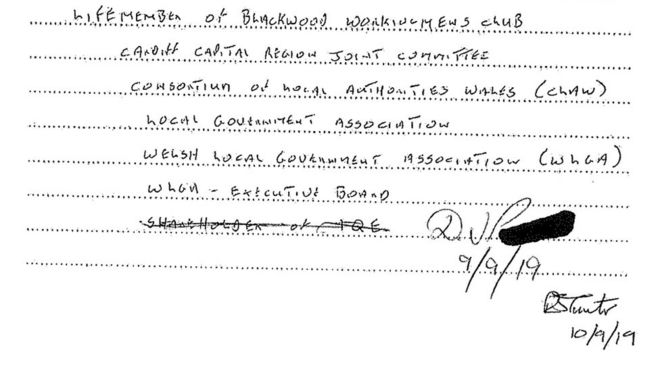 LIFE MEMBER OF BLACKWOOD WORKINGMENS CLUB
CARDIFF CAPITAL REGION JOINT COMMITTEE
CONSORTIUM OF LOCAL AUTHORITIES WALES (CLAW)
LOCAL GOVERNMENT ASSOCIATION
WELSH LOCAL GOVERNMENT ASSOCIATION (WLGA)
WLGA - EXECUTIVE BOARD
SHAREHOLDER OF IQE
9/9/19
10/9/19